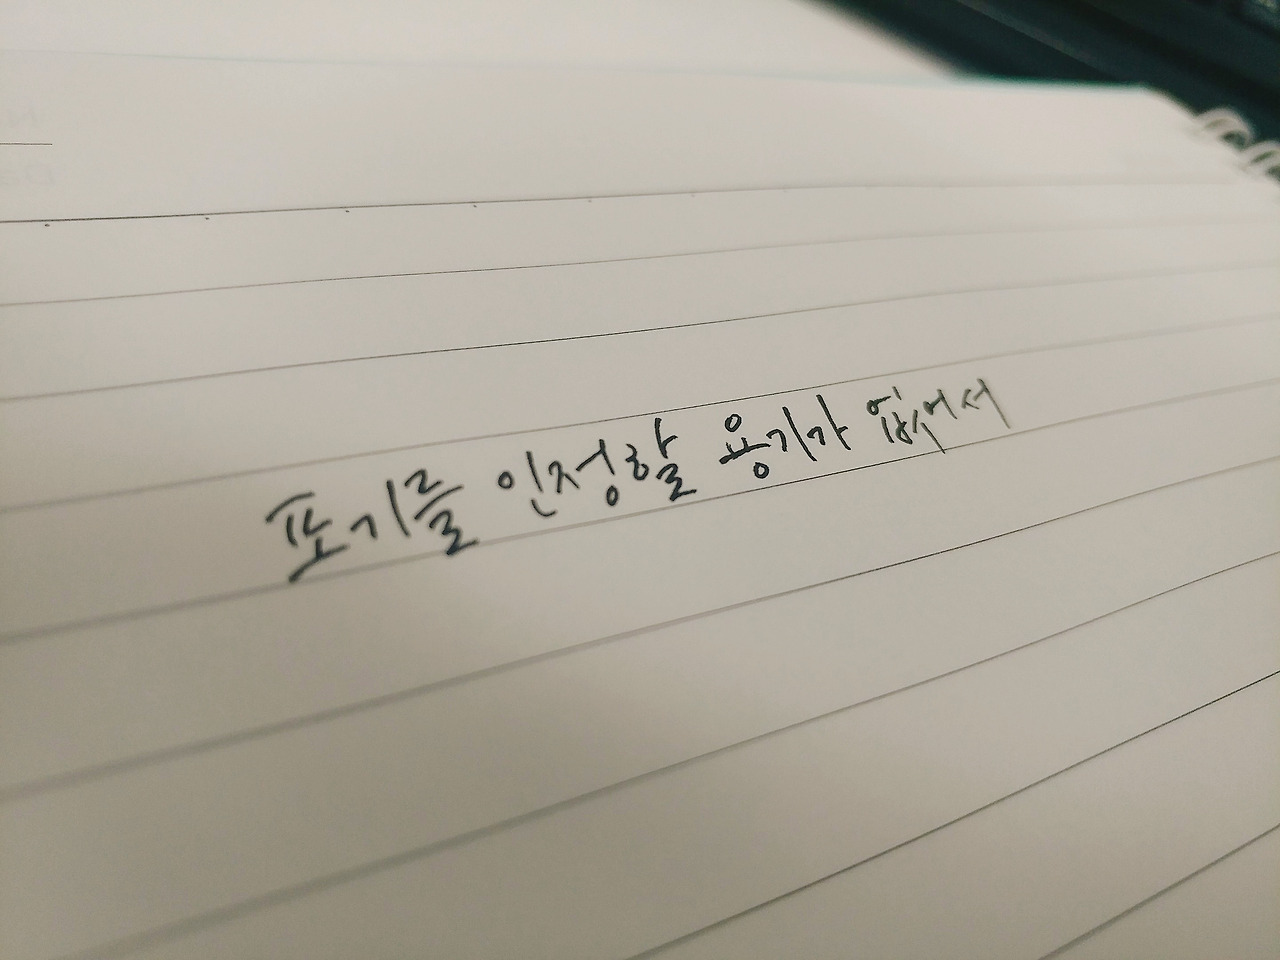 포기를 인정할 용기가 없어서